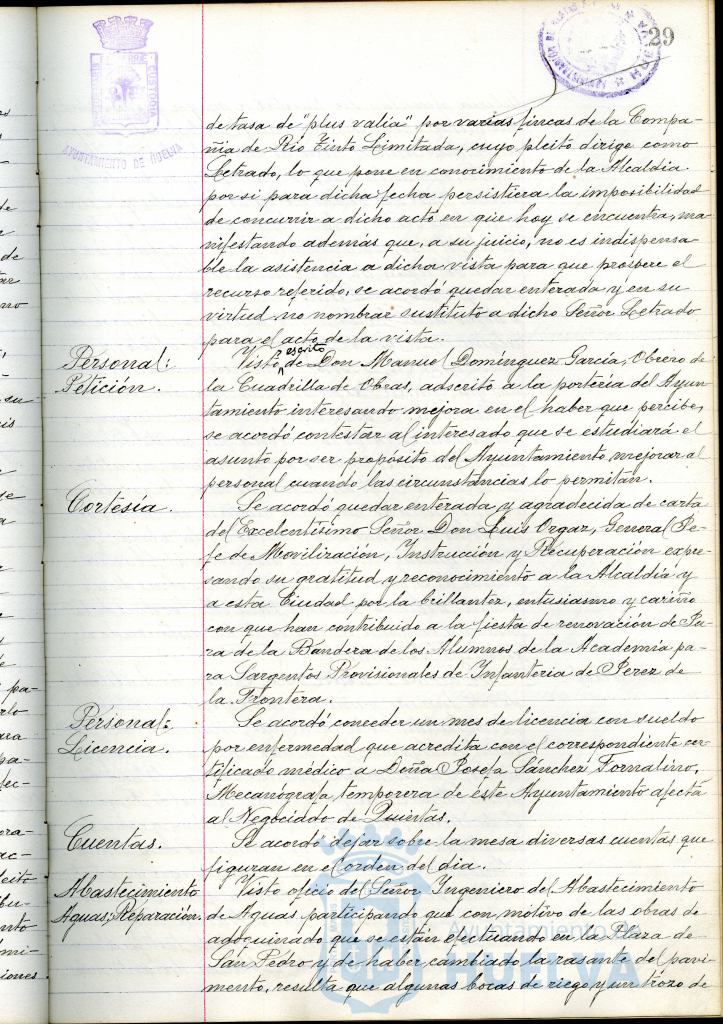 29
AYUNTAMIENTO DE HUELVA
de tasa de "plus valia" por varias fincas de la Compa-
ñia de Rio Tinto Limitada, cuyo pleito dirige como
Letrado, lo que pone en conocimiento de la Alcaldia
por si para dicha fecha persistiera la imposibilidad
de concurrir a dicho acto en que hoy se encuentra, ma
nifestando además que, a su juicio, no es indispensa-
ble la asistencia a dicha vista para que prospere el
recurso referido, se acordó quedar enterada y en su
virtud no nombrar sustituto a dicho Señor Letrado
para el acto de la vista.
Personal:
Petición.
Visto escrito de Don Manuel Dominguez García, Obrero de
la Cuadrilla de Obras, adscrito a la portería del Ayun-
tamiento interesando mejora en el haber que percibe,
se acordó contestar al interesado que se estudiará el
asunto por ser propósito del Ayuntamiento mejorar al
personal cuando las circunstancias lo permitan.
Cortesía.
Se acordó quedar enterada y agradecida de carta
del Excelentísimo Señor Don Luis Orgaz, General Je-
fe de Movilización, Instrucción y Recuperación expre-
sando su gratitud y reconocimiento a la Alcaldía y
a esta Ciudad por la brillantez, entusiasmo y cariño
con que han contribuido a la fiesta de renovación de Ju
ra de la Bandera de los Alumnos de la Academia pa-
ra Sargentos Provisionales de Infanteria de Jerez de
la Frontera.
Personal:
Licencia.
Se acordó conceder un mes de licencia con sueldo
por enfermedad que acredita con el correspondiente cer-
tificado médico a Doña Josefa Sánchez Tornalino,
Mecanógrafa temporera de este Ayuntamiento afecta
al Negociado de Quintas.
Cuentas.
Se acordó dejar sobre la mesa diversas cuentas que
figuran en el orden del dia.
Abastecimiento
Aguas; Reparación.
Visto oficio del Señor Ingeniero del Abastecimiento
de Aguas participando que con motivo de las obras de
adoquinado que se están efectuando en la Plaza de
San Pedro y de haber cambiado la rasante del pavi-
mento, resulta que algunas bocas de riego y un trozo de
Ayuntamiento de
HUELVA